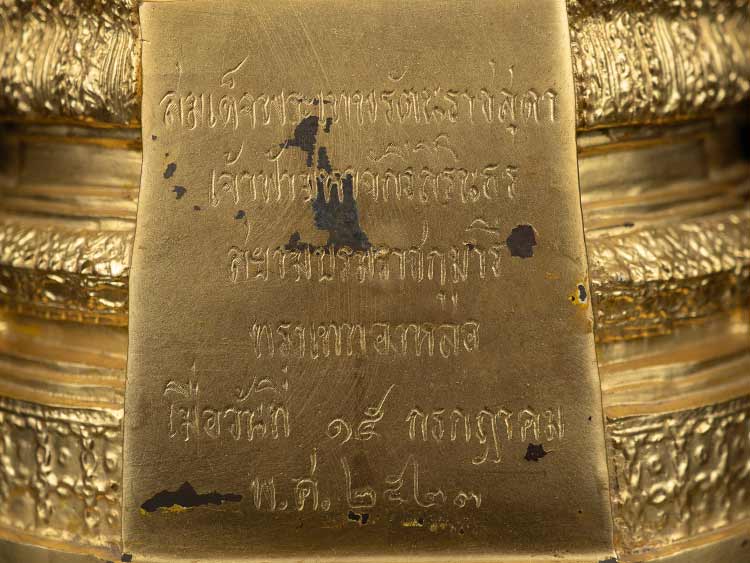 สมเด็จพระเทพรัตนราชสุดา
เจ้าฟ้ามหาจักรีสิรินธร
สยามบรมราชกุมารี
ทรงเททองหล่อ
เมื่อวันที่ ๑๕ กรกฎาคม
พ.ศ. ๒๕๒๓